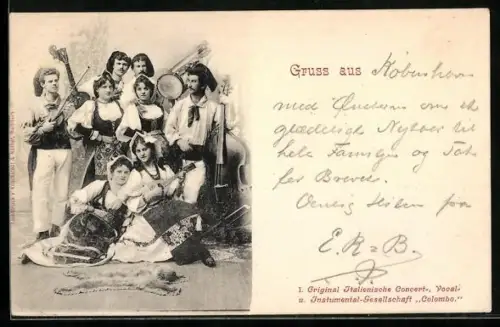 Gruss aus København
med Ønsket om et
glædeligt Nytaar til
hele Familjen og Tak
for Brevet.
Hilsen fra
E. R = B.
I. Original Italienische Concert-, Vocal-
u. Instumental-Gesellschaft „Colombo."